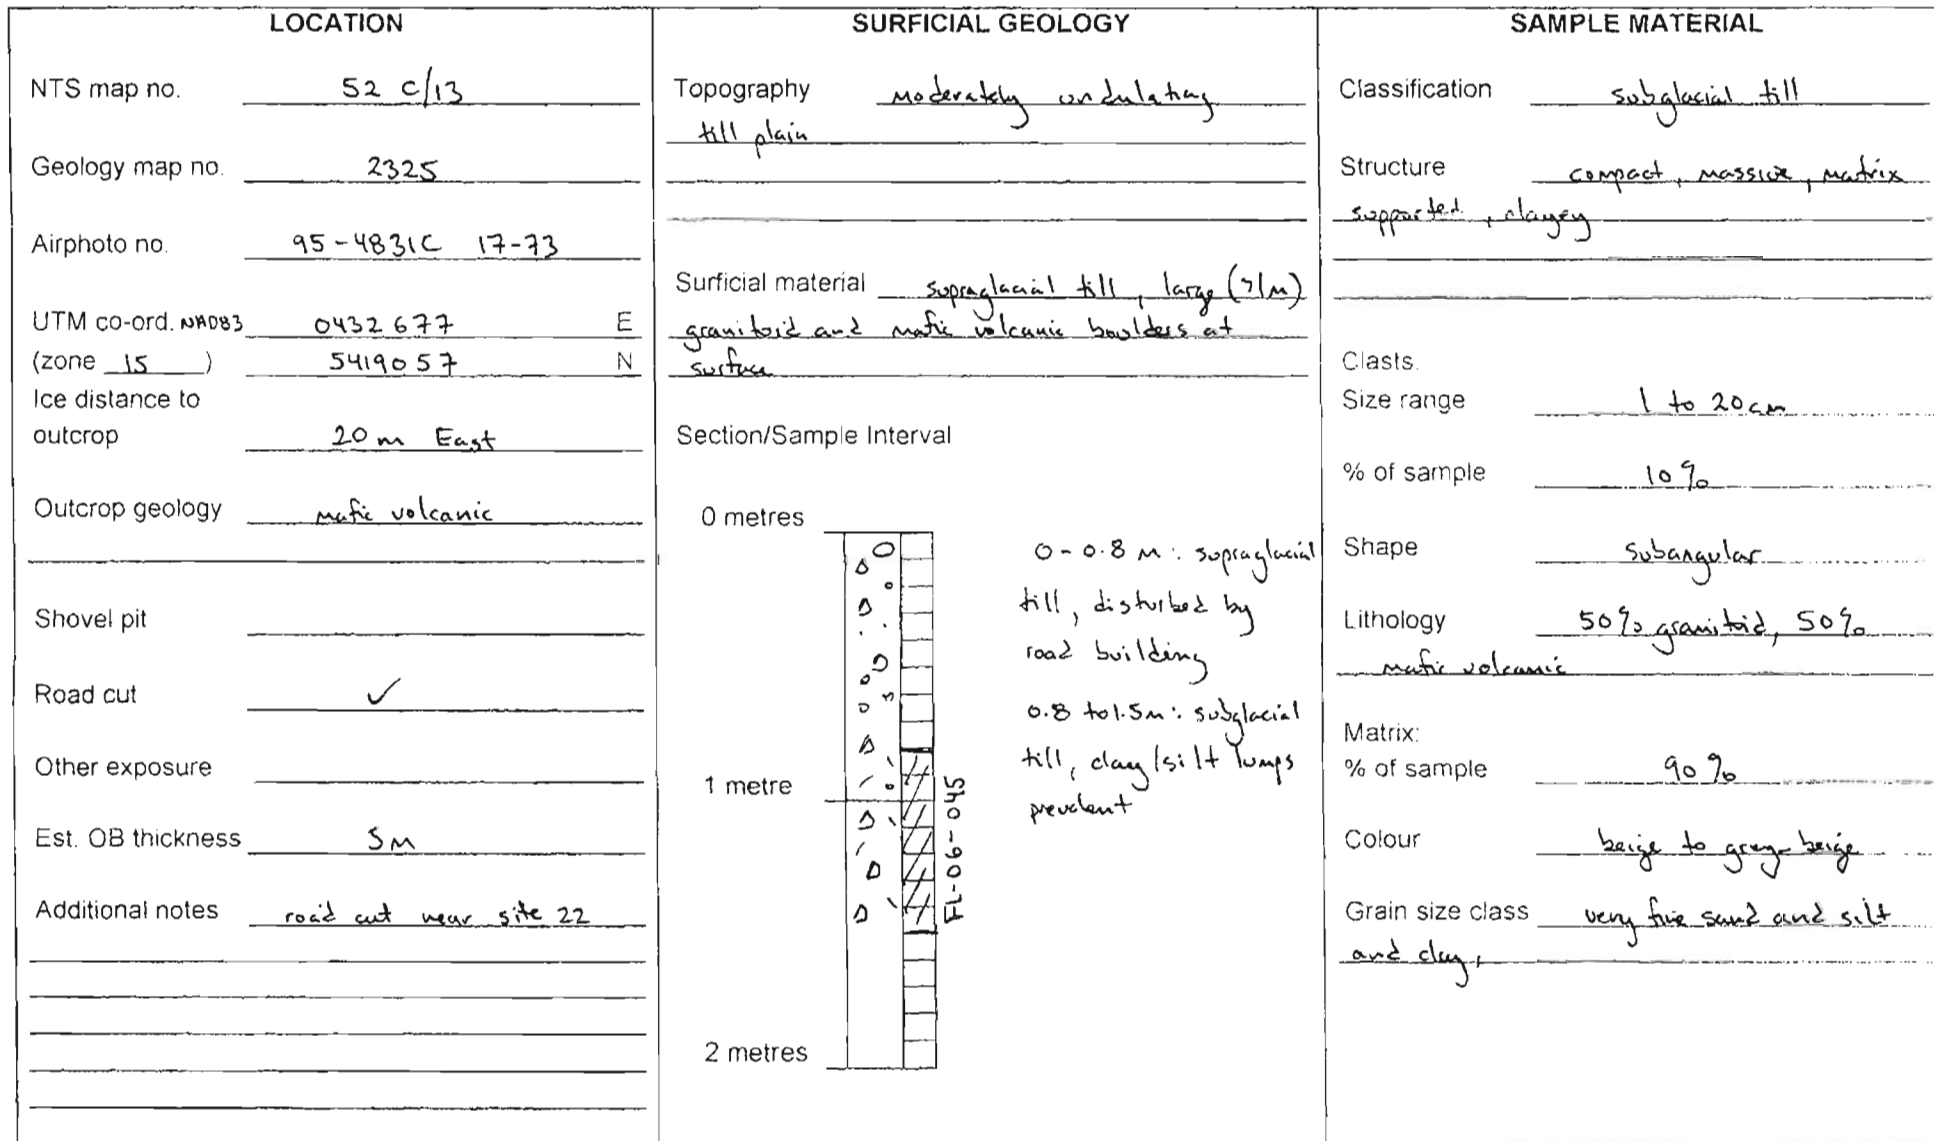 LOCATION
NTS map no. 52 C/13
Geology map no. 2325
Airphoto no. 95-4831C 17-73
UTM co-ord. NAD83 0432677 E
(zone 15 ) 5419057 N
Ice distance to
outcrop 20 m East
Outcrop geology mafic volcanic
Shovel pit
Road cut ✓
Other exposure
Est. OB thickness 5m
Additional notes road cut near site 22
SURFICIAL GEOLOGY
Topography moderately undulating
till plain
Surficial material supraglacial till, large (>1m)
granitoid and mafic volcanic boulders at
surface
Section/Sample Interval
0 metres
0 - 0.8 m: supraglacial
till, disturbed by
road building
0.8 to 1.5m: subglacial
till, clay/silt lumps
prevalent
1 metre
FL-06-045
2 metres
SAMPLE MATERIAL
Classification subglacial till
Structure compact, massive, matrix
supported, clayey
Clasts.
Size range 1 to 20cm
% of sample 10%
Shape subangular
Lithology 50% granitoid, 50%
mafic volcanic
Matrix:
% of sample 90%
Colour beige to grey-beige
Grain size class very fine sand and silt
and clay,